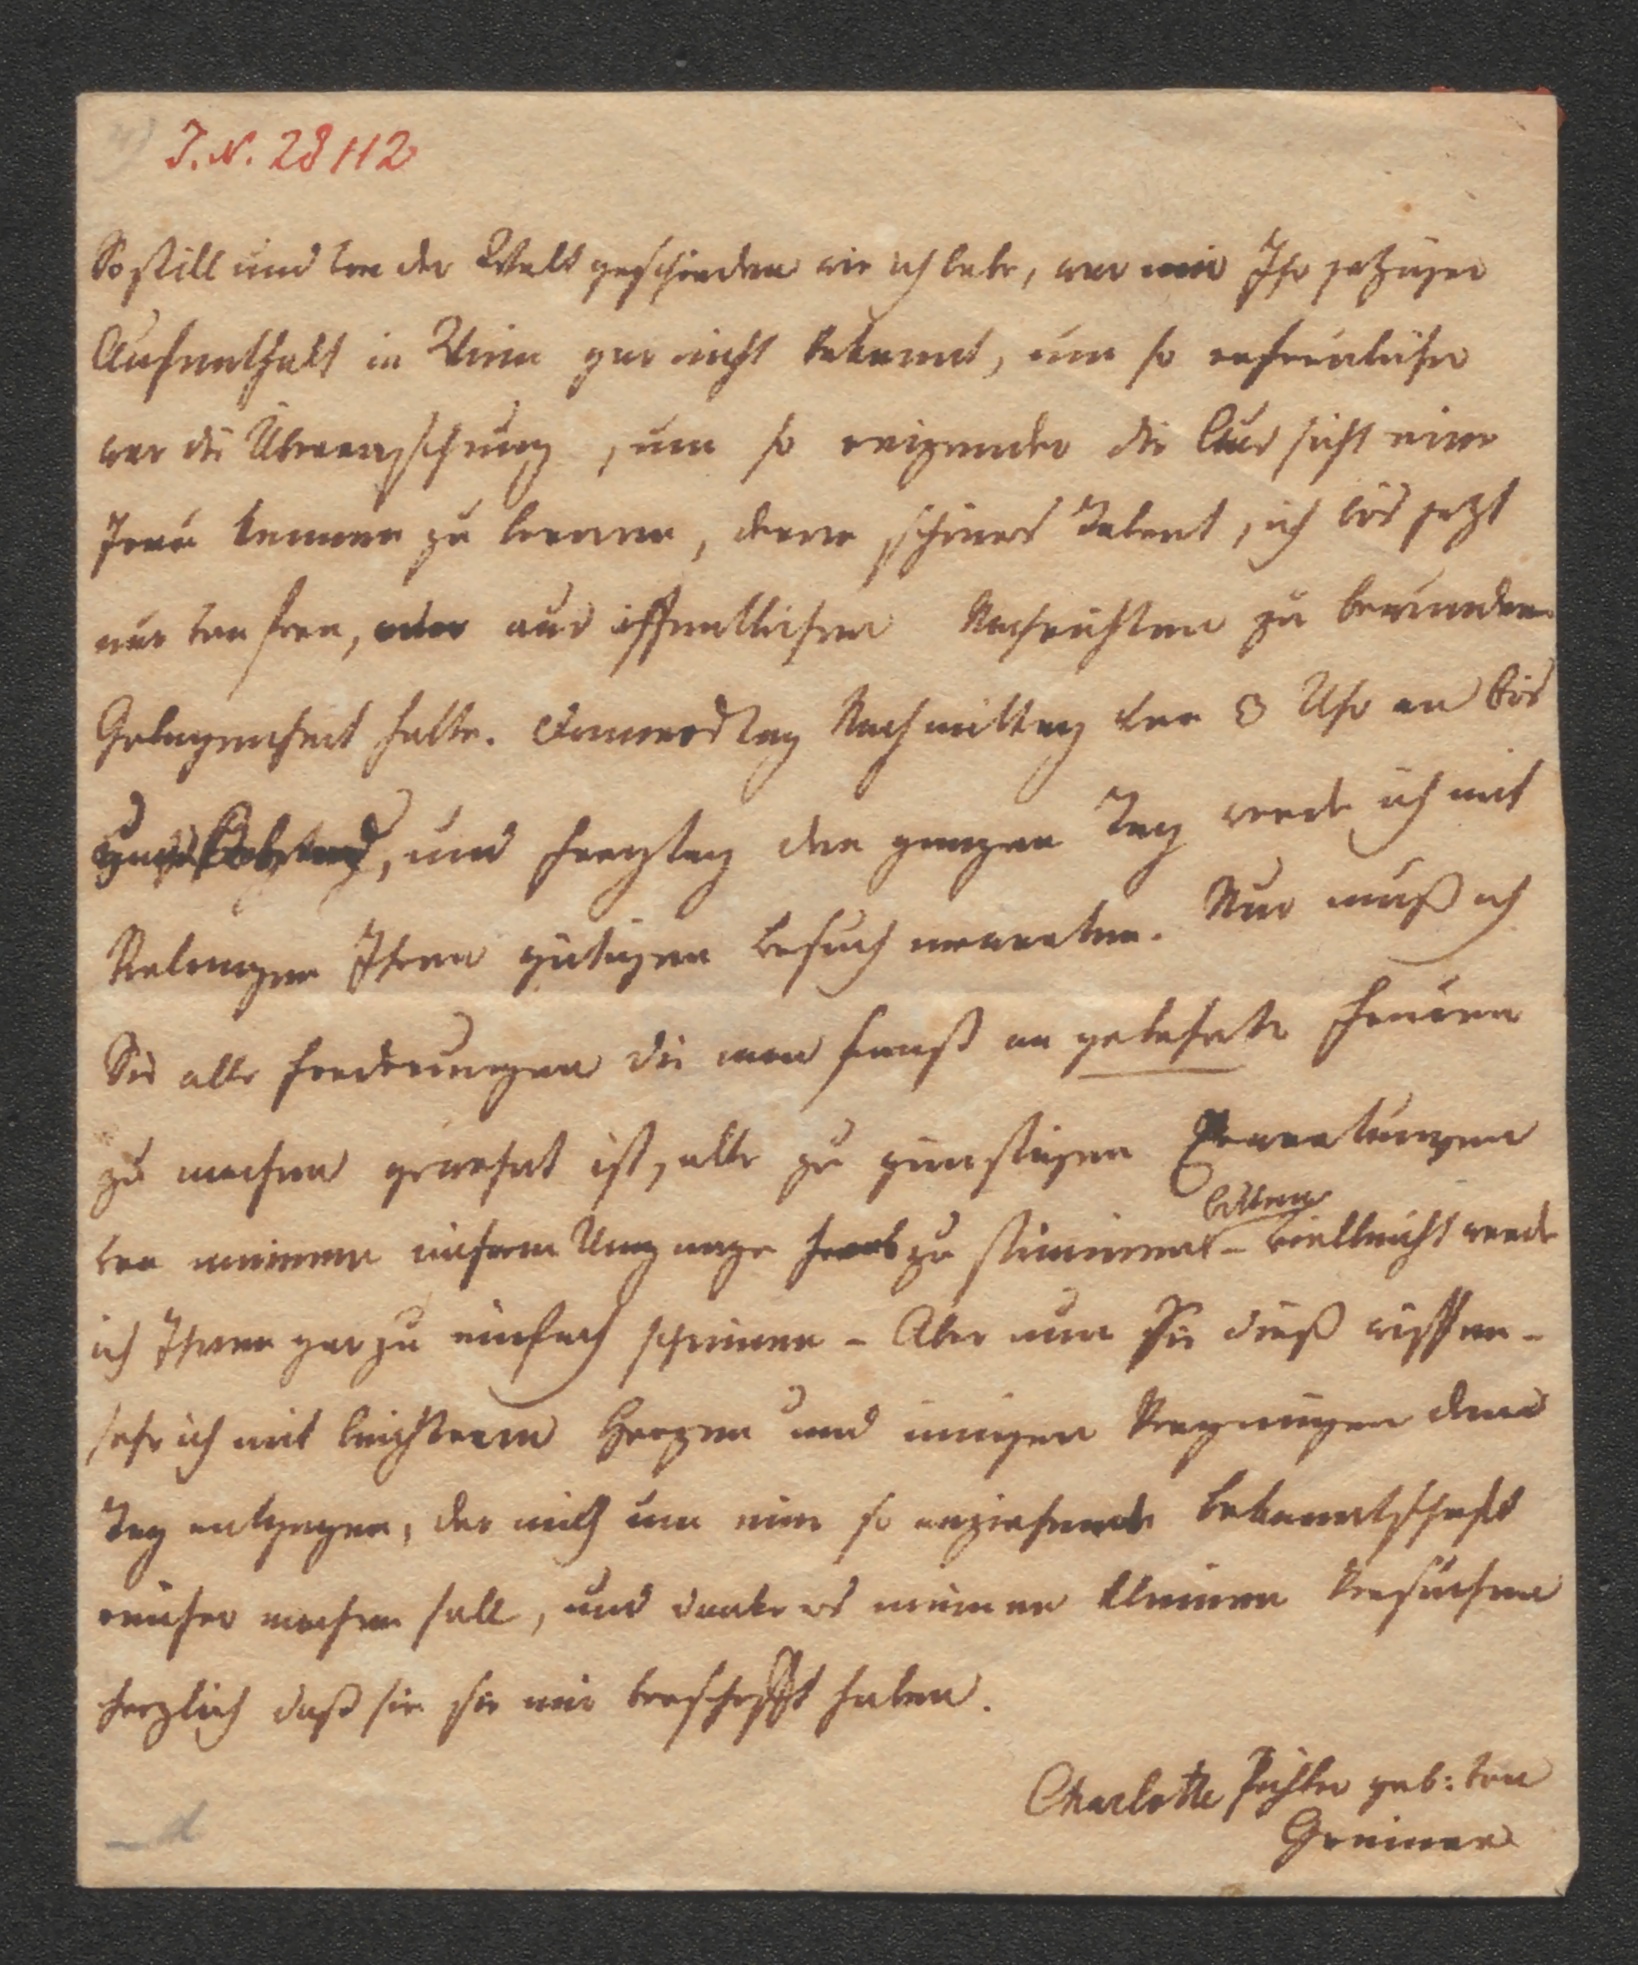 I.N. 28112
So still und von der Welt geschieden wie ich lebe, war mir Ihr jetziger
Aufenthalt in Wien gar nicht bekannt, um so erfreulicher
war die Überraschung, um so reizender die Aussicht eine
Frau kennen zu lernen, deren schönes Talent, ich bis jetzt
nur von fern, oder aus öffentlichen Nachrichten zu bewundern
Gelegenheit hatte. Donnerstag Nachmittag von 3 Uhr an bis
, und Freytag den ganzen Tag werde ich mit
Verlangen Ihren gütigen Besuch erwarten. Nur muß ich
Sie alle Foderungen die man sonst an gelehrte Frauen
zu machen gewohnt ist, alle zu günstigen Erwartungen
von meinem Umgange herab zu stimmen bitten – vielleicht werde
ich Ihnen gar zu einfach scheinen – Aber nun Sie dieß wissen –
seh ich mit leichterem Herzen und innigem Vergnügen dem
Tag entgegen, der mich um eine so anziehende Bekanntschaft
reicher machen soll, und danke es meinen kleinen Versuchen
herzlich daß sie sie mir verschafft haben.
Charlotte Pichler geb: von
Greiner